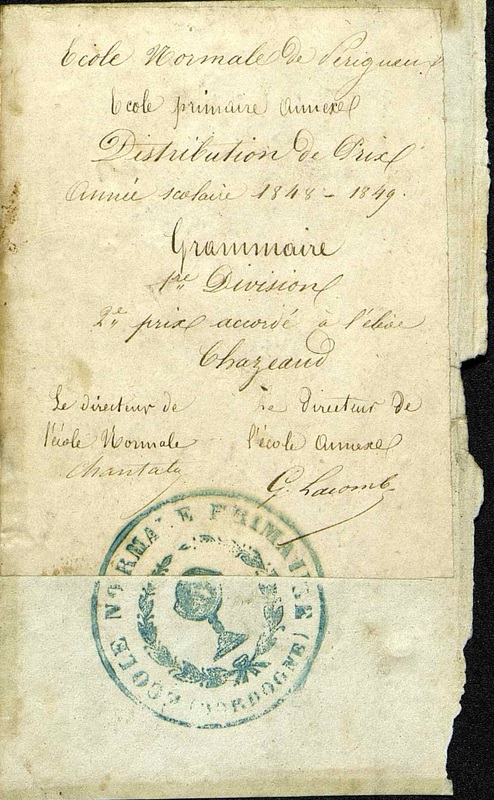 École Normale de Périgueux
École primaire annexe
Distribution de Prix
Année scolaire 1848 - 1849.
Grammaire
1re Division
2e prix accordé à l'élève
Chazeaud
Le directeur de
l'école Normale
Chantaly
Le directeur de
l'école annexe
G. Lacombe
ÉCOLE NORMALE PRIMAIRE
(DORDOGNE)